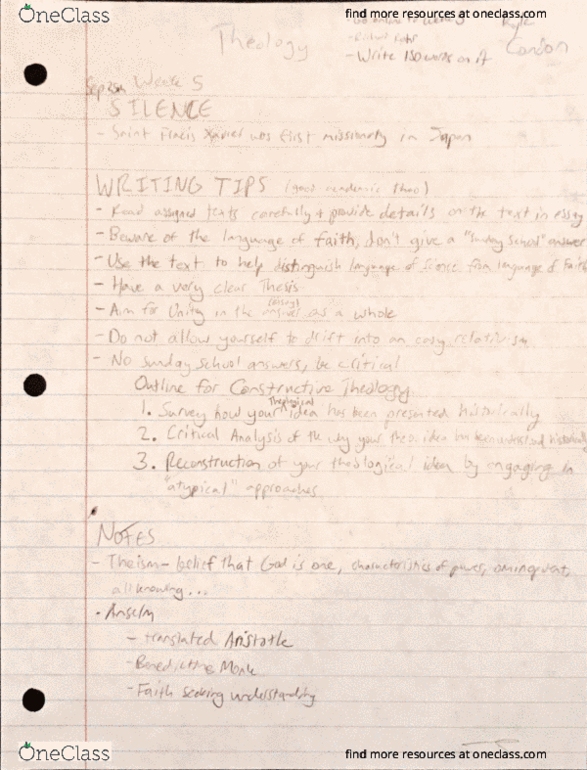 OneClass
find more resources at oneclass.com
Theology
- Write 150 words on it
Condon
Week 5
SILENCE
- Saint Francis Xavier was first missionary in Japan
WRITING TIPS (good academic
- Read assigned texts carefully + provide details on the text in essay
- Beware of the language of faith, don't give a "Sunday School" answer
- Use the text to help distinguish language of Science from language of Faith
- Have a very clear Thesis
- Aim for Unity in the answer (essay) as a whole
- Do not allow yourself to drift into an easy relativism
- No Sunday School answers, be critical
Outline for Constructive Theology
1. Survey how your Theological idea has been presented historically
2. Critical Analysis of the why your theo. idea has been understood historically
3. Reconstruction of your theological idea by engaging in
"atypical" approaches
NOTES
- Theism - belief that God is one, characteristics of power,
all knowing...
• Anselm
- translated Aristotle
- Benedictine Monk
- Faith seeking understanding
OneClass
find more resources at oneclass.com